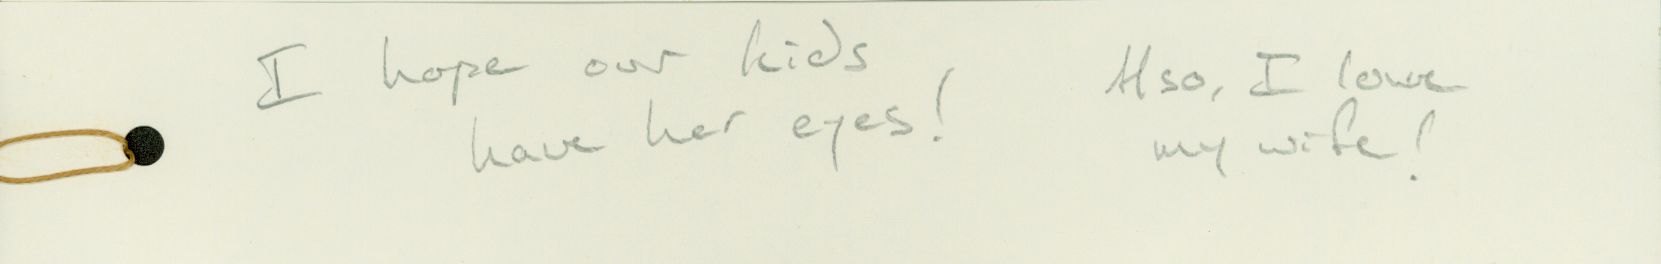 I hope our kids
have her eyes!
Also, I love
my wife!